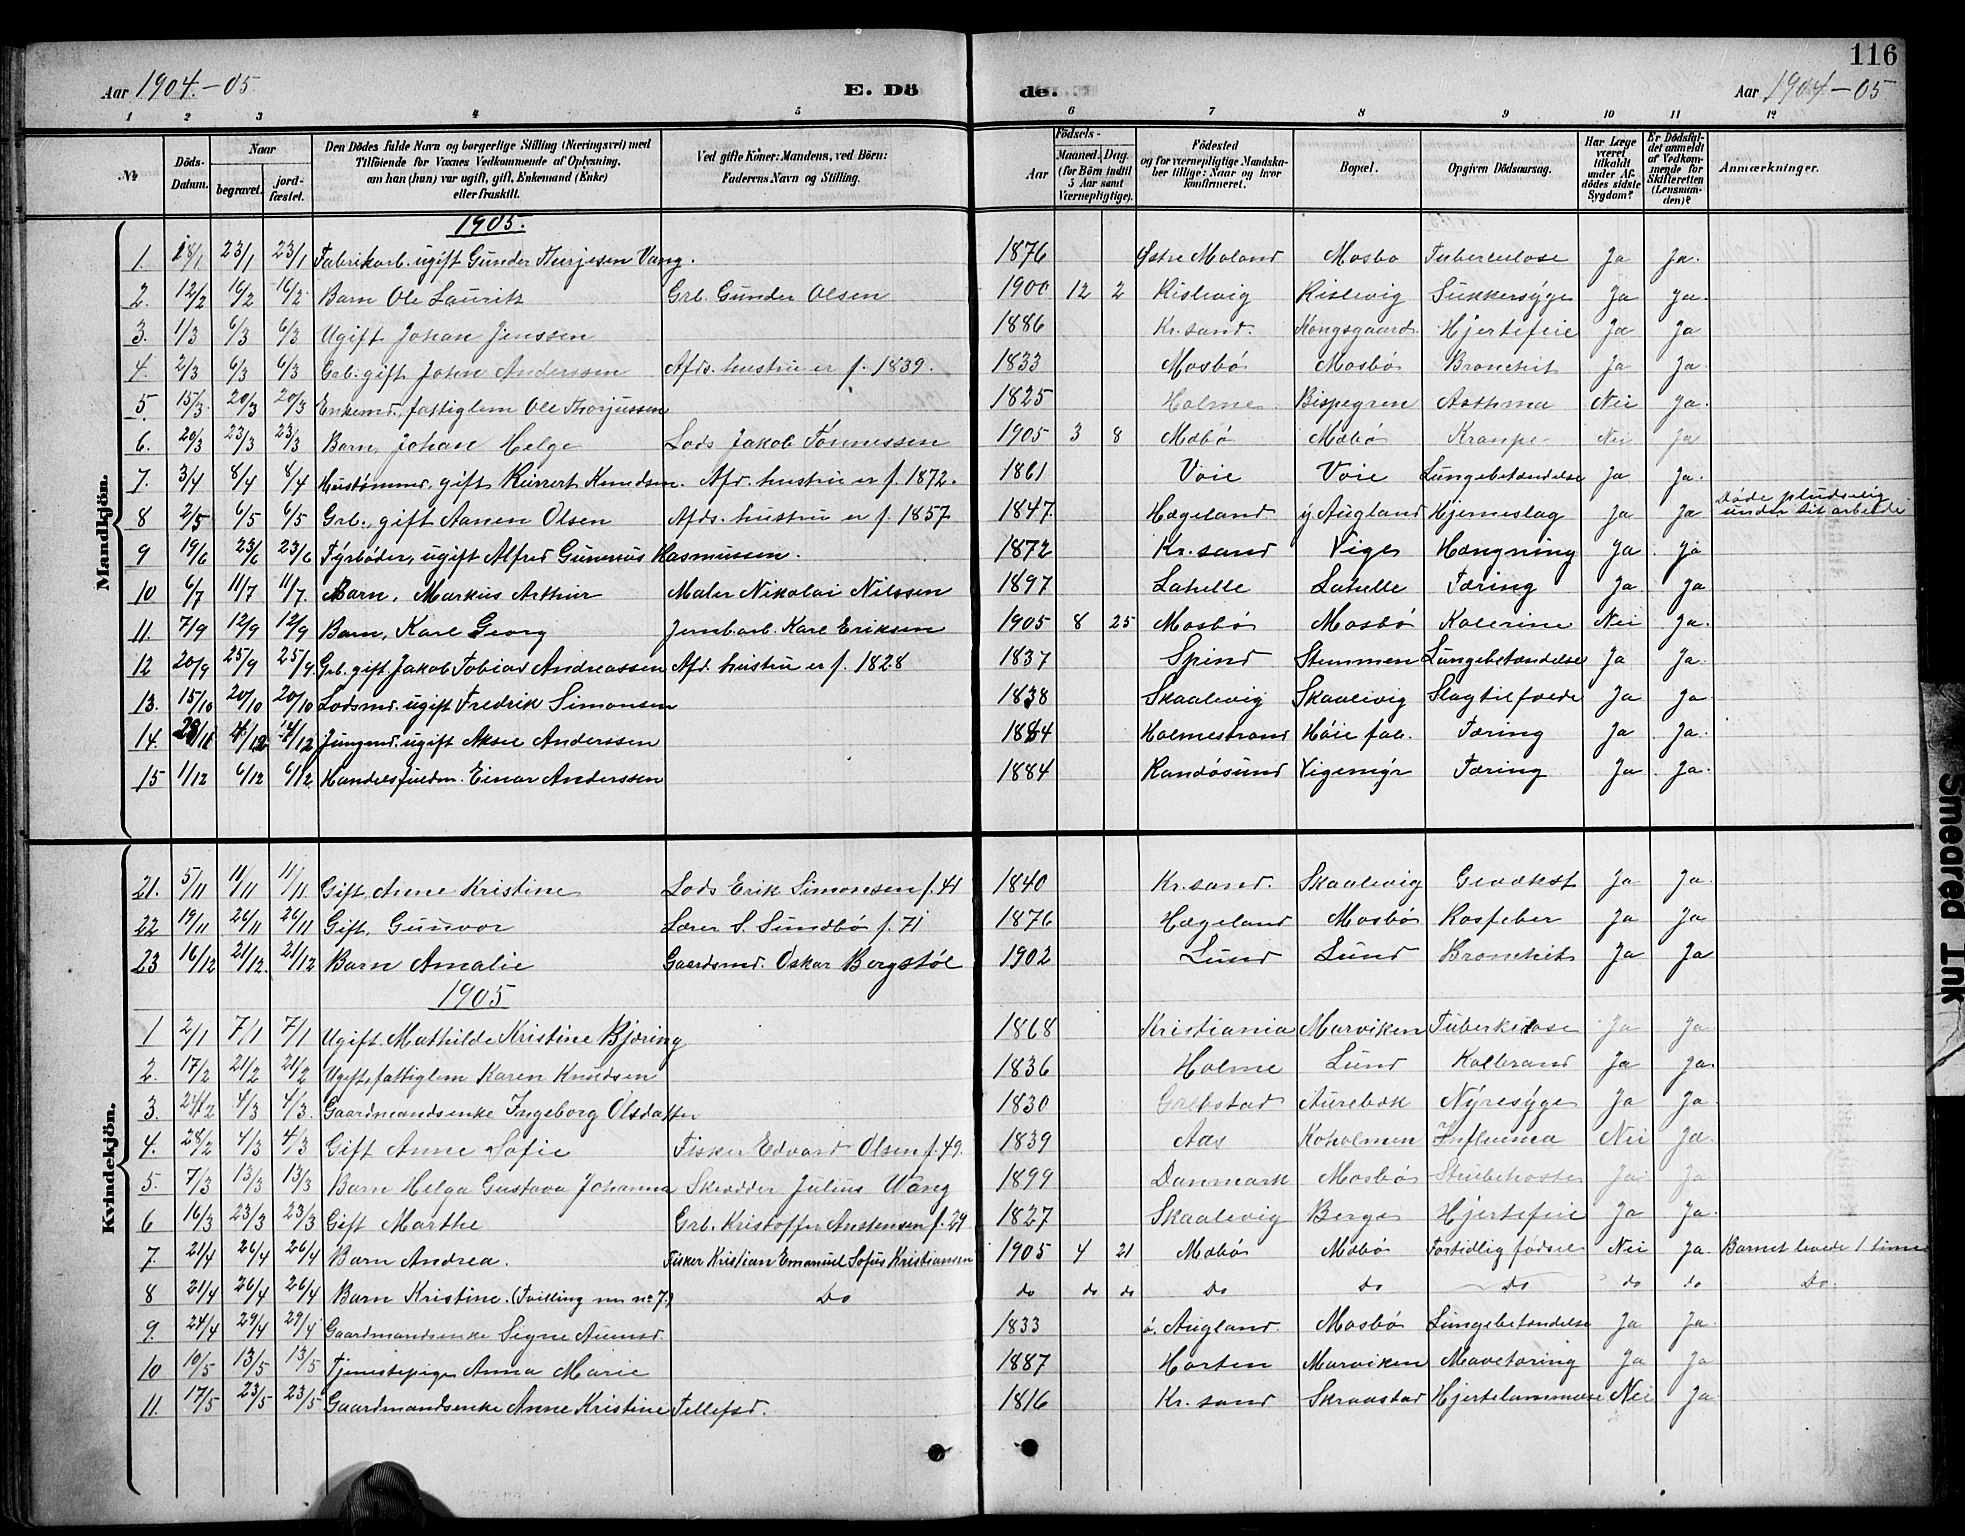 116
Aar 1904-05 E. Dö de. Aar 1904-05
1 2 3 4 5 6 7 8 9 10 11 12
№ Döds-Datum. Naar begravet. jord-fæstet. Den Dödes fulde Navn og borgerlige Stilling (Næringsvei) med Tilföiende for Voxnes Vedkommende af Oplysning, om han (hun) var ugift, gift, Enkemand (Enke) eller fraskilt. Ved gifte Koner: Mandens, ved Börn: Faderens Navn og Stilling. Födsels- Aar Maaned. Dag. (for Börn indtil 5 Aar samt Værnepligtige). Födested og for værnepligtige Mandskaber tillige: Naar og hvor konfirmeret. Bopæl. Opgiven Dödsaarsag. Har Læge været tilkaldt under Afdödes sidste Sygdom? Er Dödsfaldet anmeldt af Vedkommende for Skifteretten (Lensmanden)? Anmærkninger.
Mandkjön.
1905.
1. 18/1 23/1 23/1 Fabrikarb. ugift Gunder Terjesen Vang. 1876 Østre Moland Mosbø Tuberculose Ja Ja.
2. 12/2 16/2 16/2 Barn Ole Lauritz Grb. Gunder Olsen 1900 12 2 Kislevig Kislevig Sukkersyge Ja Ja.
3. 1/3 6/3 6/3 Ugift Johan Jenssen 1886 Kr.sand. Kongsgaard Hjertefeil Ja Ja
4. 2/3 6/3 6/3 Grb. gift John Anderssen Afds. hustru er f. 1839. 1833 Mosbö Mosbö Bronchit Ja Ja
5. 15/3 20/3 20/3 Enkemd, fattiglem Ole Thorjussen 1825 Holme Bispegren Asthma Nei Ja.
6. 20/3 23/3 23/3 Barn, Johan Helge Lods Jakob Tönnessen 1905 3 8 Mæbö Mæbö Krampe Nei Ja
7. 3/4 8/4 8/4 gift Knudsen. Afd. hustru er f. 1872. 1861 Voie Voie Lungebetændelse Ja Ja.
8 2/5 6/5 6/5 Grb. gift Aanen Olsen Afds. hustru er f. 1857 1847. Hægeland y. Augland Hjerneslag Ja Ja Døde pludselig under sit arbeide
9 19/6 23/6 23/6 Fyrböder, ugift Alfred Gunnius Rasmussen. 1872 Kr.sand Vige Hængning Ja. Ja
10 6/7 11/7 11/7. Barn, Markus Arthur Maler Nikolai Nilssen 1897 Lahelle Lahelle Tæring Ja Ja
11. 7/9 12/9 12/9 Barn, Karl Georg Jernbarb. Karl Eriksen 1905 8 25 Mosbö Mosbö Kolerine Nei Ja.
12 20/9 25/9 25/9. Grb. gift Jakob Tobias Andreassen Afd. hustru er f. 1828 1837 Spind Stemmen Lungebetændelse Ja Ja.
13. 15/10 20/10 20/10 Lodsmd. ugift Fredrik Simonsen 1838 Skaalevig Skaalevig Slagtilfælde Ja Ja
14. 29/11 4/12 4/12 Jungmd. ugift Aksel Anderssen 1884 Holmestrand Höie fab. Tæring Ja Ja.
15 1/12 6/12 6/12. Einar Anderssen 1884 Randösund Vigemyr Tæring Ja Ja.
Kvindekjön.
21. 5/11 11/11 11/11. Gift, Anne Kristine Lods Erik Simonsen f. 41 1840 Kr.sand. Skaalevig Gevækst Ja Ja.
22 19/11 26/11 26/11 Gift, Gunvor Lærer S. Sundbö f. 71 1876 Hægeland Mosbö Rosfeber Ja Ja
23 16/12 21/12. 21/12 Barn Amalie Gaardsmd. Oskar Bergstöl 1902 Lund Lund Bronchit Ja Ja
1905
1 2/1 7/1 7/1 Ugift. Mathilde Kristine Björing 1868 Kristiania Marviken Tuberkulose Ja Ja
2. 17/2 21/2 21/2 Ugift, fattiglem Karen Knudsen 1836 Holme Lund Kolbrand Ja Ja.
3. 24/2 4/3 4/3. Gaardmandsenke Ingeborg Olsdatter 1830 Grebstad Aurebæk Nyresyge Ja Ja.
4. 28/2 4/3 4/3 Gift Anne Sofie Fisker Edvard Olsen f. 49. 1839 Aas Koholmen Influenza Nei Ja.
5. 7/3 13/3 13/3 Barn Helga Gustava Johanna Skrædder Julius Wang 1899 Danmark Mosbö Strubehoste Ja Ja
6 16/3 23/3 23/3 Gift Marthe Grb. Kristoffer Anstensen f. 29 1827 Skaalevig Berge Hjertefeil Ja Ja.
7. 21/4 26/4 26/4 Barn Andrea. Fisker Kristian Emanuel Sofus Kristiansen 1905 4 21 Mæbö Mæbö Fortidlig födsel Nei Ja. Barnet levede 1 time
8 21/4 26/4 26/4 Barn Kristine. (Tvilling m. no 7.) Do do do do Do Do Do do do Do.
9. 24/4 29/4 29/4 Gaardmandsenke Signe 1833 ö. Augland. Mosbö Lungebetændelse Ja Ja.
10 10/5 13/5 13/5 Tjenestepige Anna Marie 1887 Horten Marviken Mavetæring Ja Ja
11. 17/5 23/5 23/5 Gaardmandsenke Anne Kristine Tellefsd. 1816 Kr.sand Skraastad Hjertelammelse Nei Ja
Smeared Ink